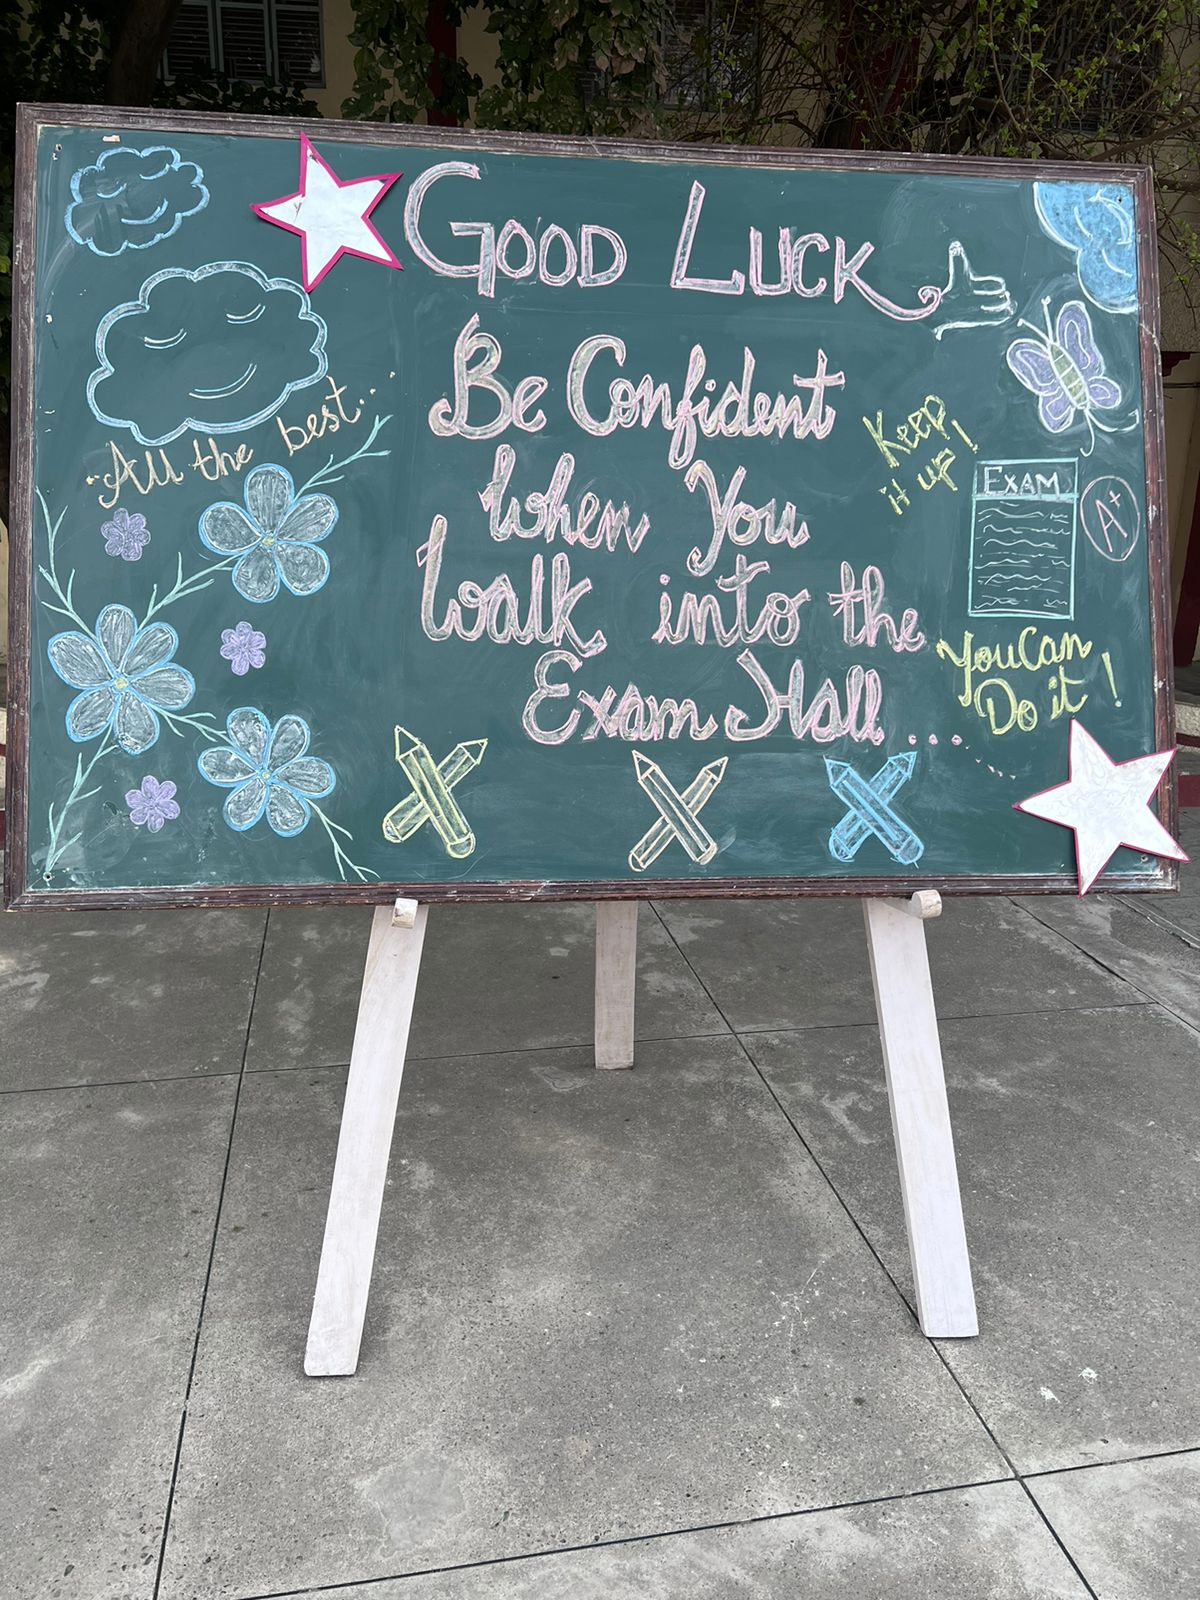 Good Luck
Be Confident
When You
Walk into the
Exam Hall....
All the best...
Keep
it up!
EXAM
A+
You Can
Do it!